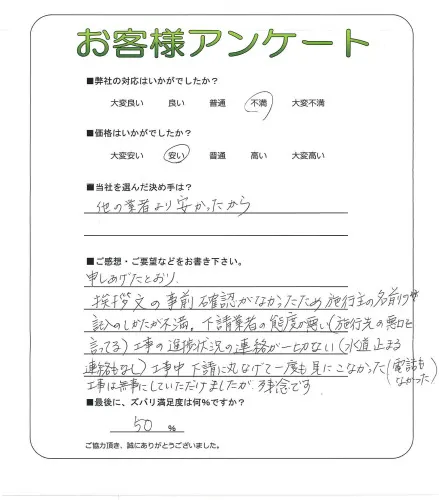 お客様アンケート
■弊社の対応はいかがでしたか?
大変良い 良い 普通 不満 大変不満
■価格はいかがでしたか?
大変安い 安い 普通 高い 大変高い
■当社を選んだ決め手は?
他の業者より安かったから
■ご感想・ご要望などをお書き下さい。
申しあげたとおり、
挨拶文の事前確認がなかったため施行主の名前の
記入のしかたが不満。下請業者の態度が悪い(施行先の悪口を
言ってる)工事の進捗状況の連絡が一切ない(水道止まる
連絡もなし)工事中下請に丸なげで一度も見にこなかった(電話も
なかった)
工事は無事にしていただけましたが、残念です
■最後に、ズバリ満足度は何%ですか?
50 %
ご協力頂き、誠にありがとうございました。